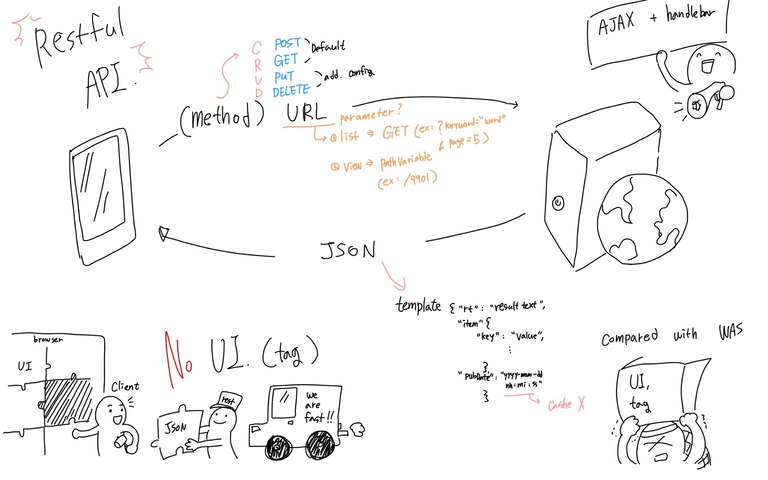 Restful
API.
C POST
R GET
Default
U PUT
D DELETE
add. config
(method) URL
parameter?
① list → GET (ex: ?keyword="word"
& page=5)
② view → pathVariable
(ex: /9901)
AJAX + handlebar
JSON
template { "rt": "result text",
"item" {
"key": "value",
⋮
},
"pubDate": "yyyy-mm-dd
hh:mi:ss"
}
Cashe X
browser
UI
Client
No UI. (tag)
JSON
rest
we
are
fast!!
Compared with WAS
UI,
tag